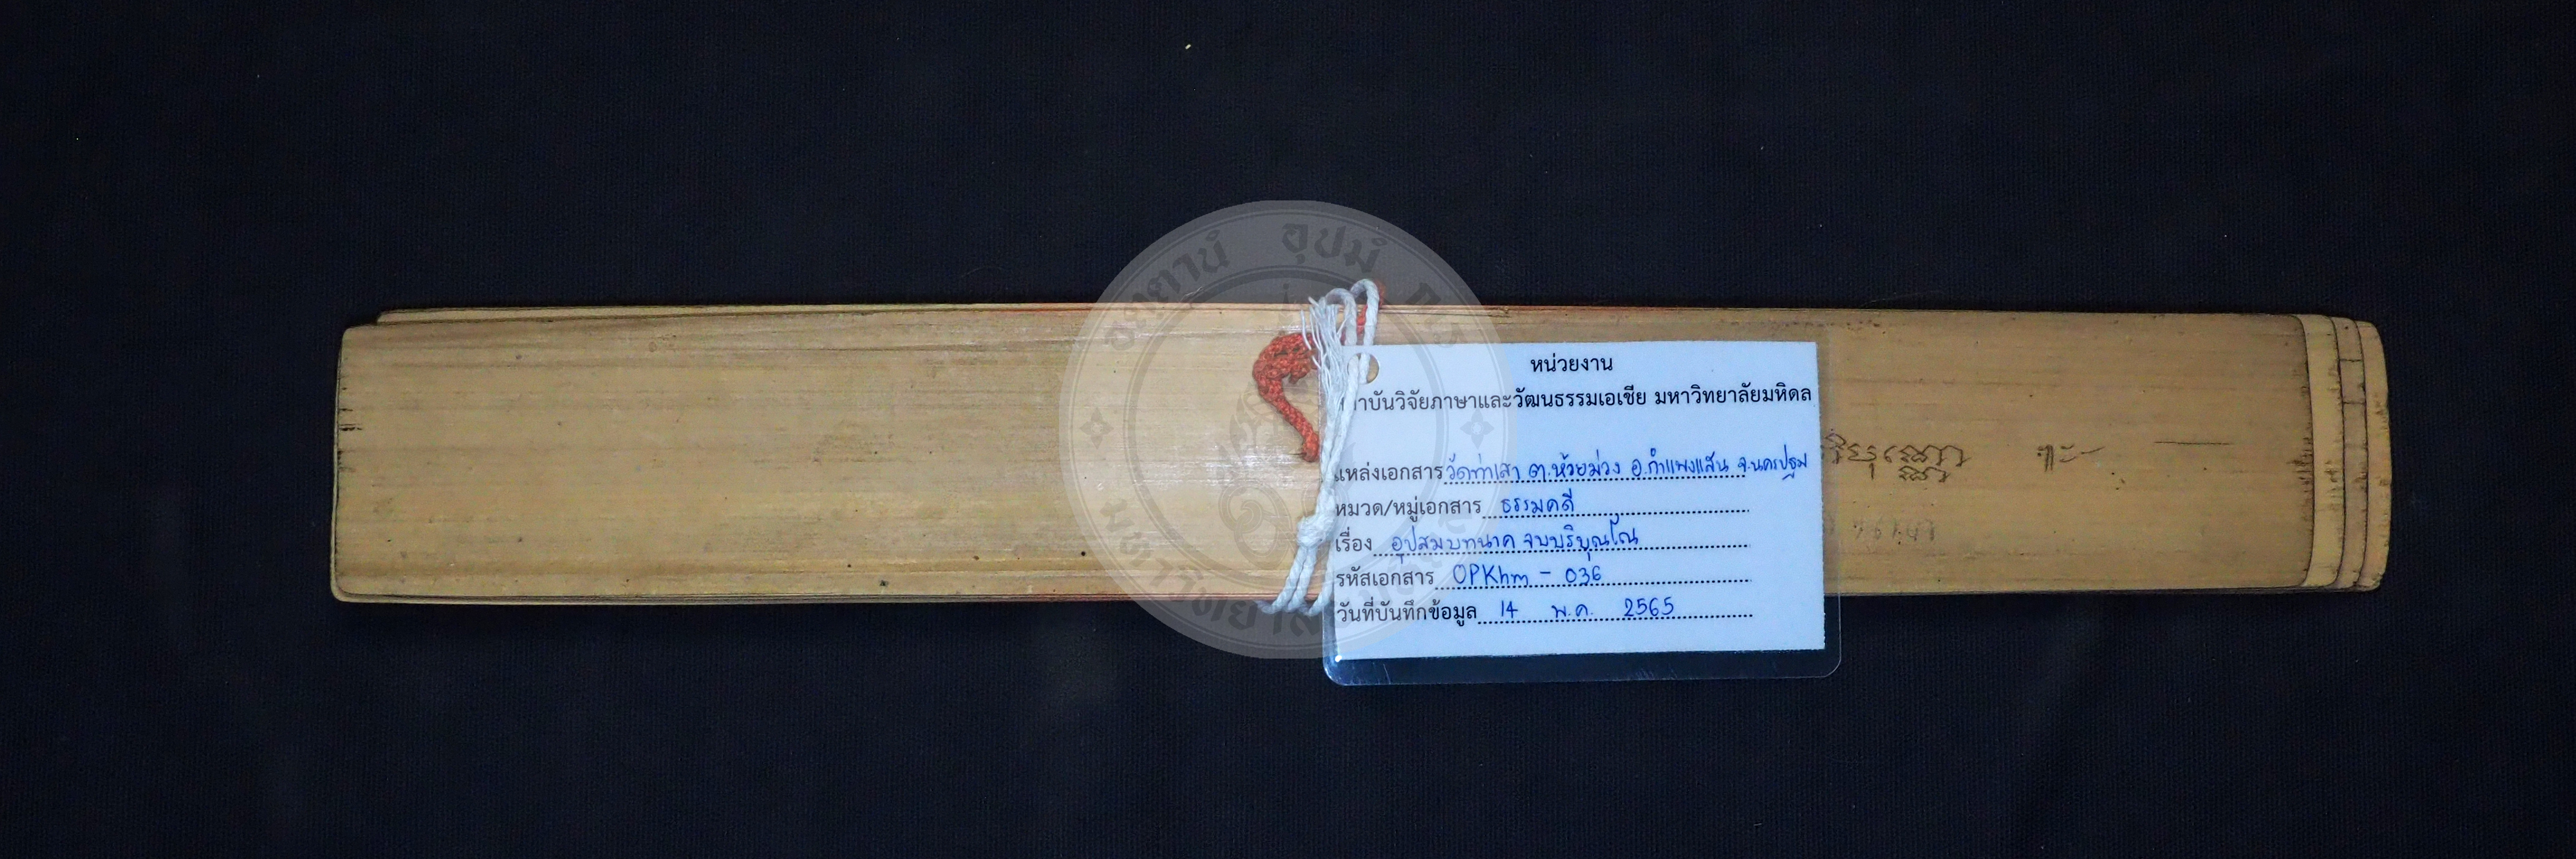 หน่วยงาน
สถาบันวิจัยภาษาและวัฒนธรรมเอเชีย มหาวิทยาลัยมหิดล
แหล่งเอกสาร วัดท่าเสา ต.ห้วยม่วง อ.กำแพงแสน จ.นครปฐม
หมวด/หมู่เอกสาร ธรรมคดี
เรื่อง อุปสมบทนาค จบบริบุณโณ่
รหัสเอกสาร OPKhm - 036
วันที่บันทึกข้อมูล 14 พ.ค. 2565
อุปมํ
มหาวิทยาลัย